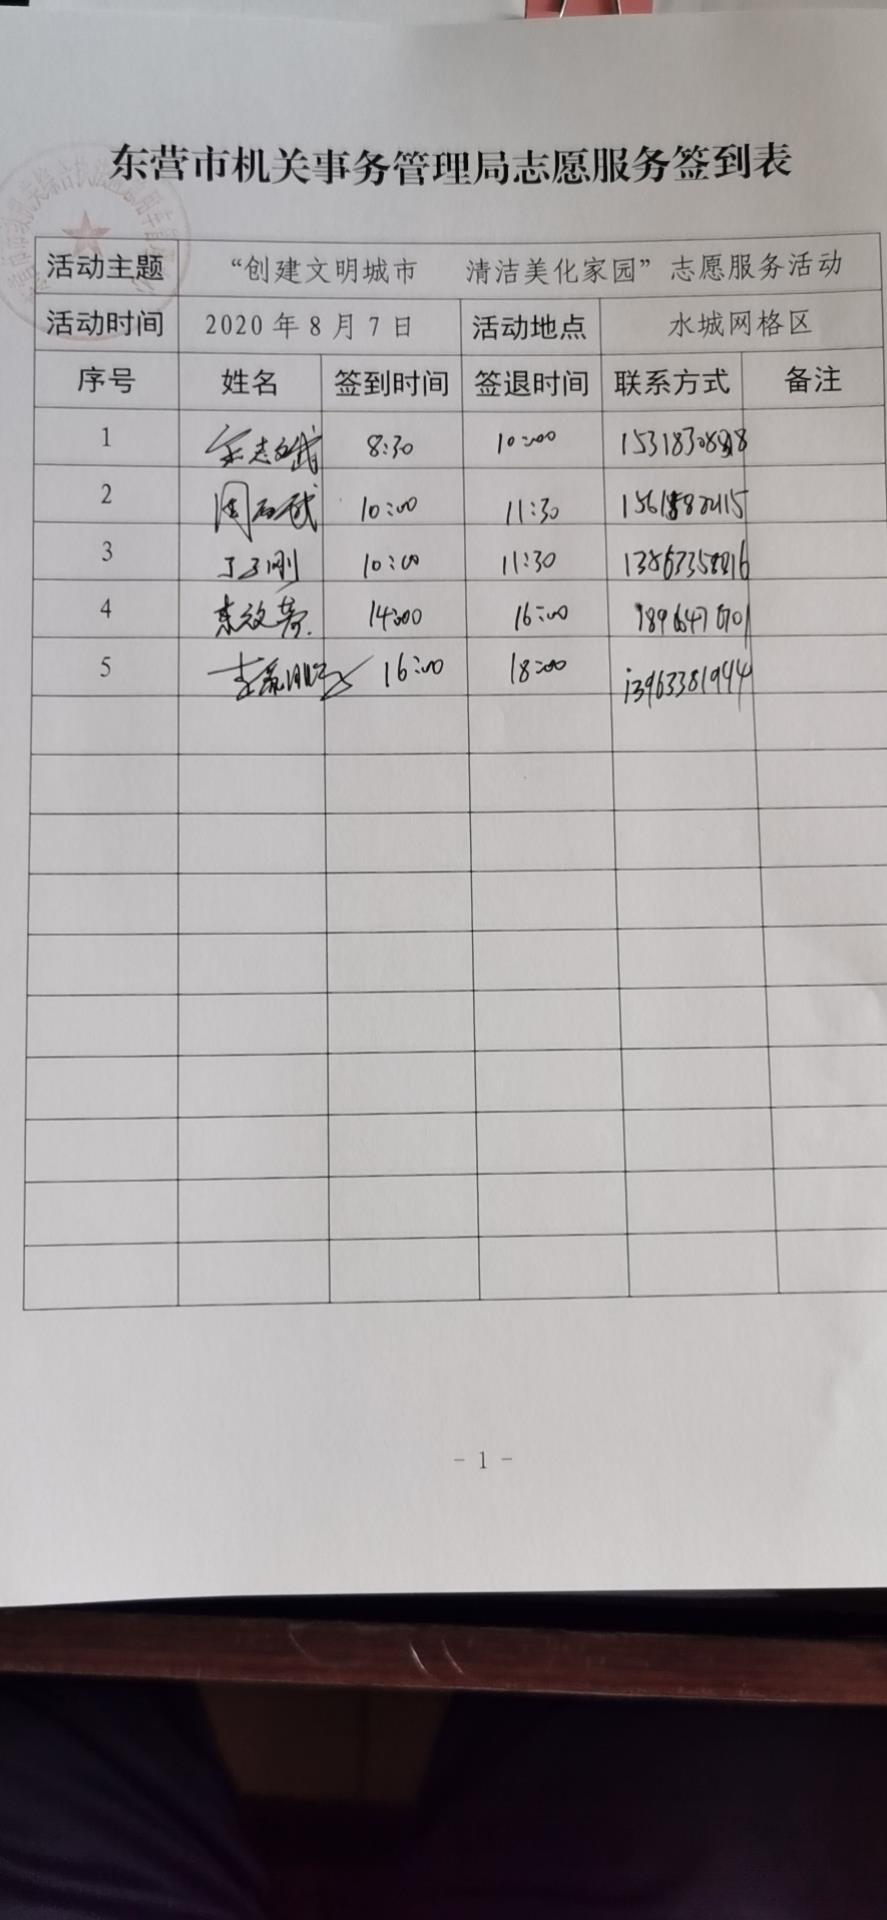 东营市机关事务管理局志愿服务签到表
活动主题 “创建文明城市 清洁美化家园”志愿服务活动
活动时间 2020年8月7日 活动地点 水城网格区
序号 姓名 签到时间 签退时间 联系方式 备注
1 8:30 10:00
2 10:00 11:30
3 10:00 11:30
4 14:00 16:00
5 16:00 18:00 13963381944
- 1 -